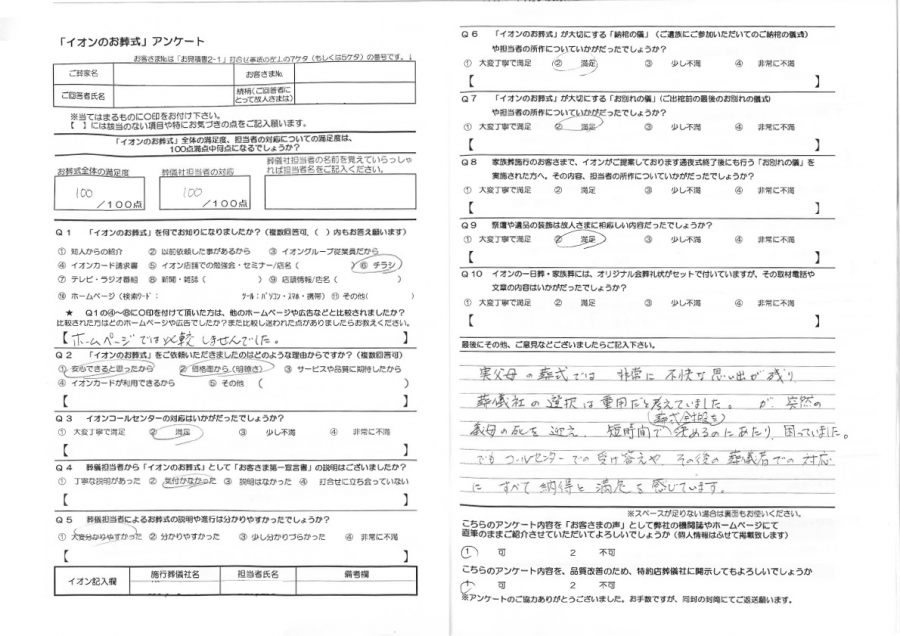 「イオンのお葬式」アンケート
お客さまNo.は「お見積書2-1」打合せ事項の左上の7ケタ(もしくは5ケタ)の番号です。↓
ご葬家名
お客さまNo.
ご回答者氏名
続柄(ご回答者に
とって故人さまは)
※当てはまるものに○印をお付け下さい。
【 】には該当のない項目や特にお気づきの点をご記入願います。
「イオンのお葬式」全体の満足度、担当者の対応についての満足度は、
100点満点中何点になるでしょうか?
お葬式全体の満足度
100
/100点
葬儀社担当者の対応
100
/100点
葬儀社担当者の名前を覚えていらっしゃ
れば担当者名をご記入ください。
Q1 「イオンのお葬式」を何でお知りになりましたか?(複数回答可、( )内もお答え願います)
① 知人からの紹介 ② 以前依頼した事があるから ③ イオングループ従業員だから
④ イオンカード請求書 ⑤ イオン店舗での勉強会・セミナー/店名( ) ⑥ チラシ
⑦ テレビ・ラジオ番組 ⑧ 新聞・雑誌( ) ⑨ 店頭情報/店名( )
⑩ ホームページ(検索ワード: ツール:パソコン・スマホ・携帯) ⑪ その他( )
★ Q1の④~⑧に○印を付けて頂いた方は、他のホームページや広告などと比較されましたか?
比較された方はどのホームページや広告でしたか?また比較し迷われた点がありましたらお教えください。
【ホームページでは比較しませんでした。】
Q2 「イオンのお葬式」をご依頼いただきましたのはどのような理由からですか?(複数回答可)
① 安心できると思ったから ② 価格面から(明瞭さ) ③ サービスや品質に期待したから
④ イオンカードが利用できるから ⑤ その他 ( )
【 】
Q3 イオンコールセンターの対応はいかがだったでしょうか?
① 大変丁寧で満足 ② 満足 ③ 少し不満 ④ 非常に不満
【 】
Q4 葬儀担当者から「イオンのお葬式」として「お客さま第一宣言書」の説明はございましたか?
① 丁寧な説明があった ② 気付かなかった ③ 説明はなかった ④ 打合せに立ち会っていない
【 】
Q5 葬儀担当者によるお葬式の説明や進行は分かりやすかったでしょうか?
① 大変分かりやすかった ② 分かりやすかった ③ 少し分かりづらかった ④ 非常に不満
【 】
イオン記入欄
施行葬儀社名
担当者氏名
備考欄
Q6 「イオンのお葬式」が大切にする「納棺の儀」(ご遺族にご参加いただいてのご納棺の儀式)
や担当者の所作についていかがだったでしょうか?
① 大変丁寧で満足 ② 満足 ③ 少し不満 ④ 非常に不満
【 】
Q7 「イオンのお葬式」が大切にする「お別れの儀」(ご出棺前の最後のお別れの儀式)
や担当者の所作についていかがだったでしょうか?
① 大変丁寧で満足 ② 満足 ③ 少し不満 ④ 非常に不満
【 】
Q8 家族葬施行のお客さまで、イオンがご提案しております通夜式終了後にも行う「お別れの儀」を
実施された方へ。その内容、担当者の所作についていかがだったでしょうか?
① 大変丁寧で満足 ② 満足 ③ 少し不満 ④ 非常に不満
【 】
Q9 祭壇や遺品の装飾は故人さまに相応しい内容だったでしょうか?
① 大変丁寧で満足 ② 満足 ③ 少し不満 ④ 非常に不満
【 】
Q10 イオンの一日葬・家族葬には、オリジナル会葬礼状がセットで付いていますが、その取材電話や
文章の内容はいかがだったでしょうか?
① 大変丁寧で満足 ② 満足 ③ 少し不満 ④ 非常に不満
【 】
最後にその他、ご意見などございましたらご記入下さい。
実父母の葬式では 非常に不快な思い出が残り、
葬儀社の選択は重用だと考えていました。が、突然の
(葬式会社を)
義母の死を迎え、短時間で決めるのにあたり、困っていました。
でもコールセンターでの受け答えや、その後の葬儀者での対応
にすべて納得と満足を感じています。
※スペースが足りない場合は裏面もお使いください。
こちらのアンケート内容を「お客さまの声」として弊社の機関誌やホームページにて
直筆のままご紹介させていただいてよろしいでしょうか(個人情報はふせて掲載致します)
1 可 2 不可
こちらのアンケート内容を、品質改善のため、特約店葬儀社に開示してもよろしいでしょうか
1 可 2 不可
※アンケートのご協力ありがとうございました。お手数ですが、同封の封筒にてご返送願います。